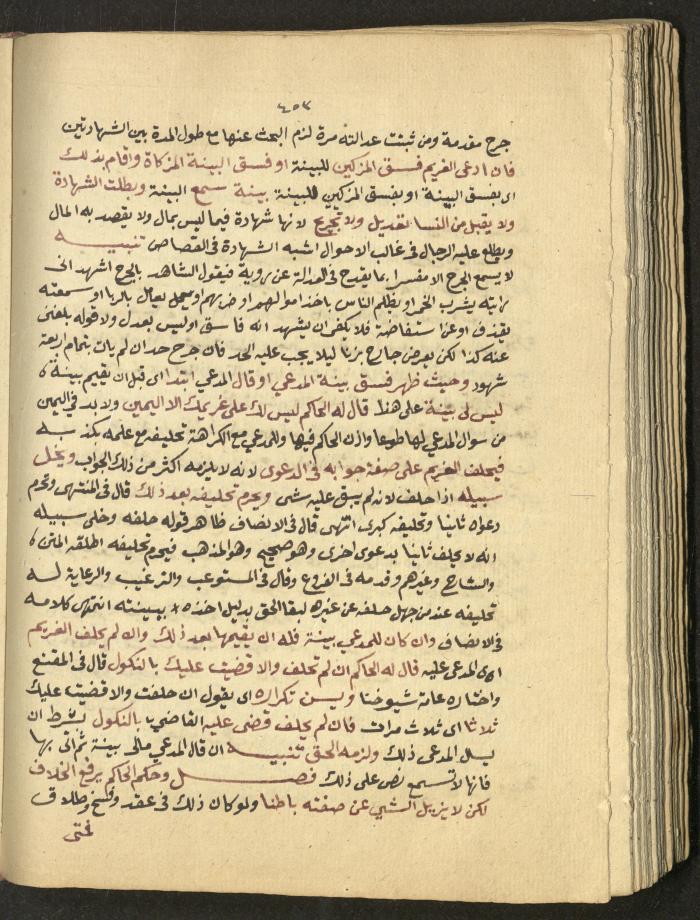 ٤٥٣
جرح مقدمة ومن ثبتت عدالته مرة لزم البحث عنها مع طول المدة بين الشهادتين
فان ادعى الغريم فسق المزكين للبينة او فسق البينة المزكاة واقام بذلك
اى بفسق البينة او بفسق المزكين للبينة بينة سمع البينة وبطلت الشهادة
ولا يقبل من النسا تعديل ولا تجريح لانها شهادة فيما ليس بمال ولا يقصد به المال
ويطلع عليه الرجال فى غالب الاحوال اشبه الشهادة فى القصاص تنبيه
لا يسمع الجرح الا مفسرا بما يقدح فى العدالة عن روية فيقول الشاهد بالجرح اشهد انى
رايته يشرب الخمر او يظلم الناس باخذ اموالهم او ضربهم ويعمل يعامل بالربا او سمعته
يقذف او عن استفاضة فلا يكفى ان يشهد انه فاسق او ليس بعدل ولا قوله بلغنى
عنه كذا لكن يعرض جارح بزنا ليلا يجب عليه الحد فان جرح حد ان لم يات بتمام اربعة
شهود وحيث ظهر فسق بينة المدعي او قال المدعي ابتدا اى قبل ان يقيم بينة
ليس لى بينة على هذا قال له الحاكم ليس لك على غريمك الا اليمين ولا بد فى اليمين
من سوال المدعي لها طوعا واذن الحاكم فيها وللمدعي مع الكراهة تحليفه مع علمه بكذبه
فيحلف الغريم على صفة جوابه فى الدعوى لانه لا يلزمه اكثر من ذلك الجواب ويخلى
سبيله اذا حلف لانه لم يبق عليه شى ويحرم تحليفه بعد ذلك قال فى المنتهى وتحرم
دعواه ثانيا وتحليفه كبرى انتهى قال فى الانصاف ظاهر قوله حلفه وخلى سبيله
انه لا يحلف ثانيا بدعوى اخرى وهو صحيح وهو المذهب فيحرم تحليفه اطلقه المتن
والشارح وغيرهم وقدمه فى الفروع وقال فى المستوعب والترغيب والرعاية له
تحليفه عند من جهل حلفه عن غيره لبقا الحق بدليل اخذه ببينته انتهى كلامه
فى الانصاف وان كان للمدعي بينة فله ان يقيمها بعد ذلك وان لم يحلف الغريم
اى المدعى عليه قال له الحاكم ان لم تحلف والا قضيت عليك بالنكول قال فى المقنع
واختاره عامة شيوخنا ويسن تكراره اى يقول ان حلفت والا قضيت عليك
ثلاثا اى ثلاث مرات فان لم يحلف قضى عليه القاضي بالنكول بشرط ان
يسل المدعي ذلك ولزمه الحق تنبيه ان قال المدعي مالى بينة ثم اتى بها
فانها لا تسمع نص على ذلك فصل وحكم الحاكم يرفع الخلاف
لكن لا يزيل الشي عن صفته باطنا ولو كان ذلك فى عقد وفسخ وطلاق